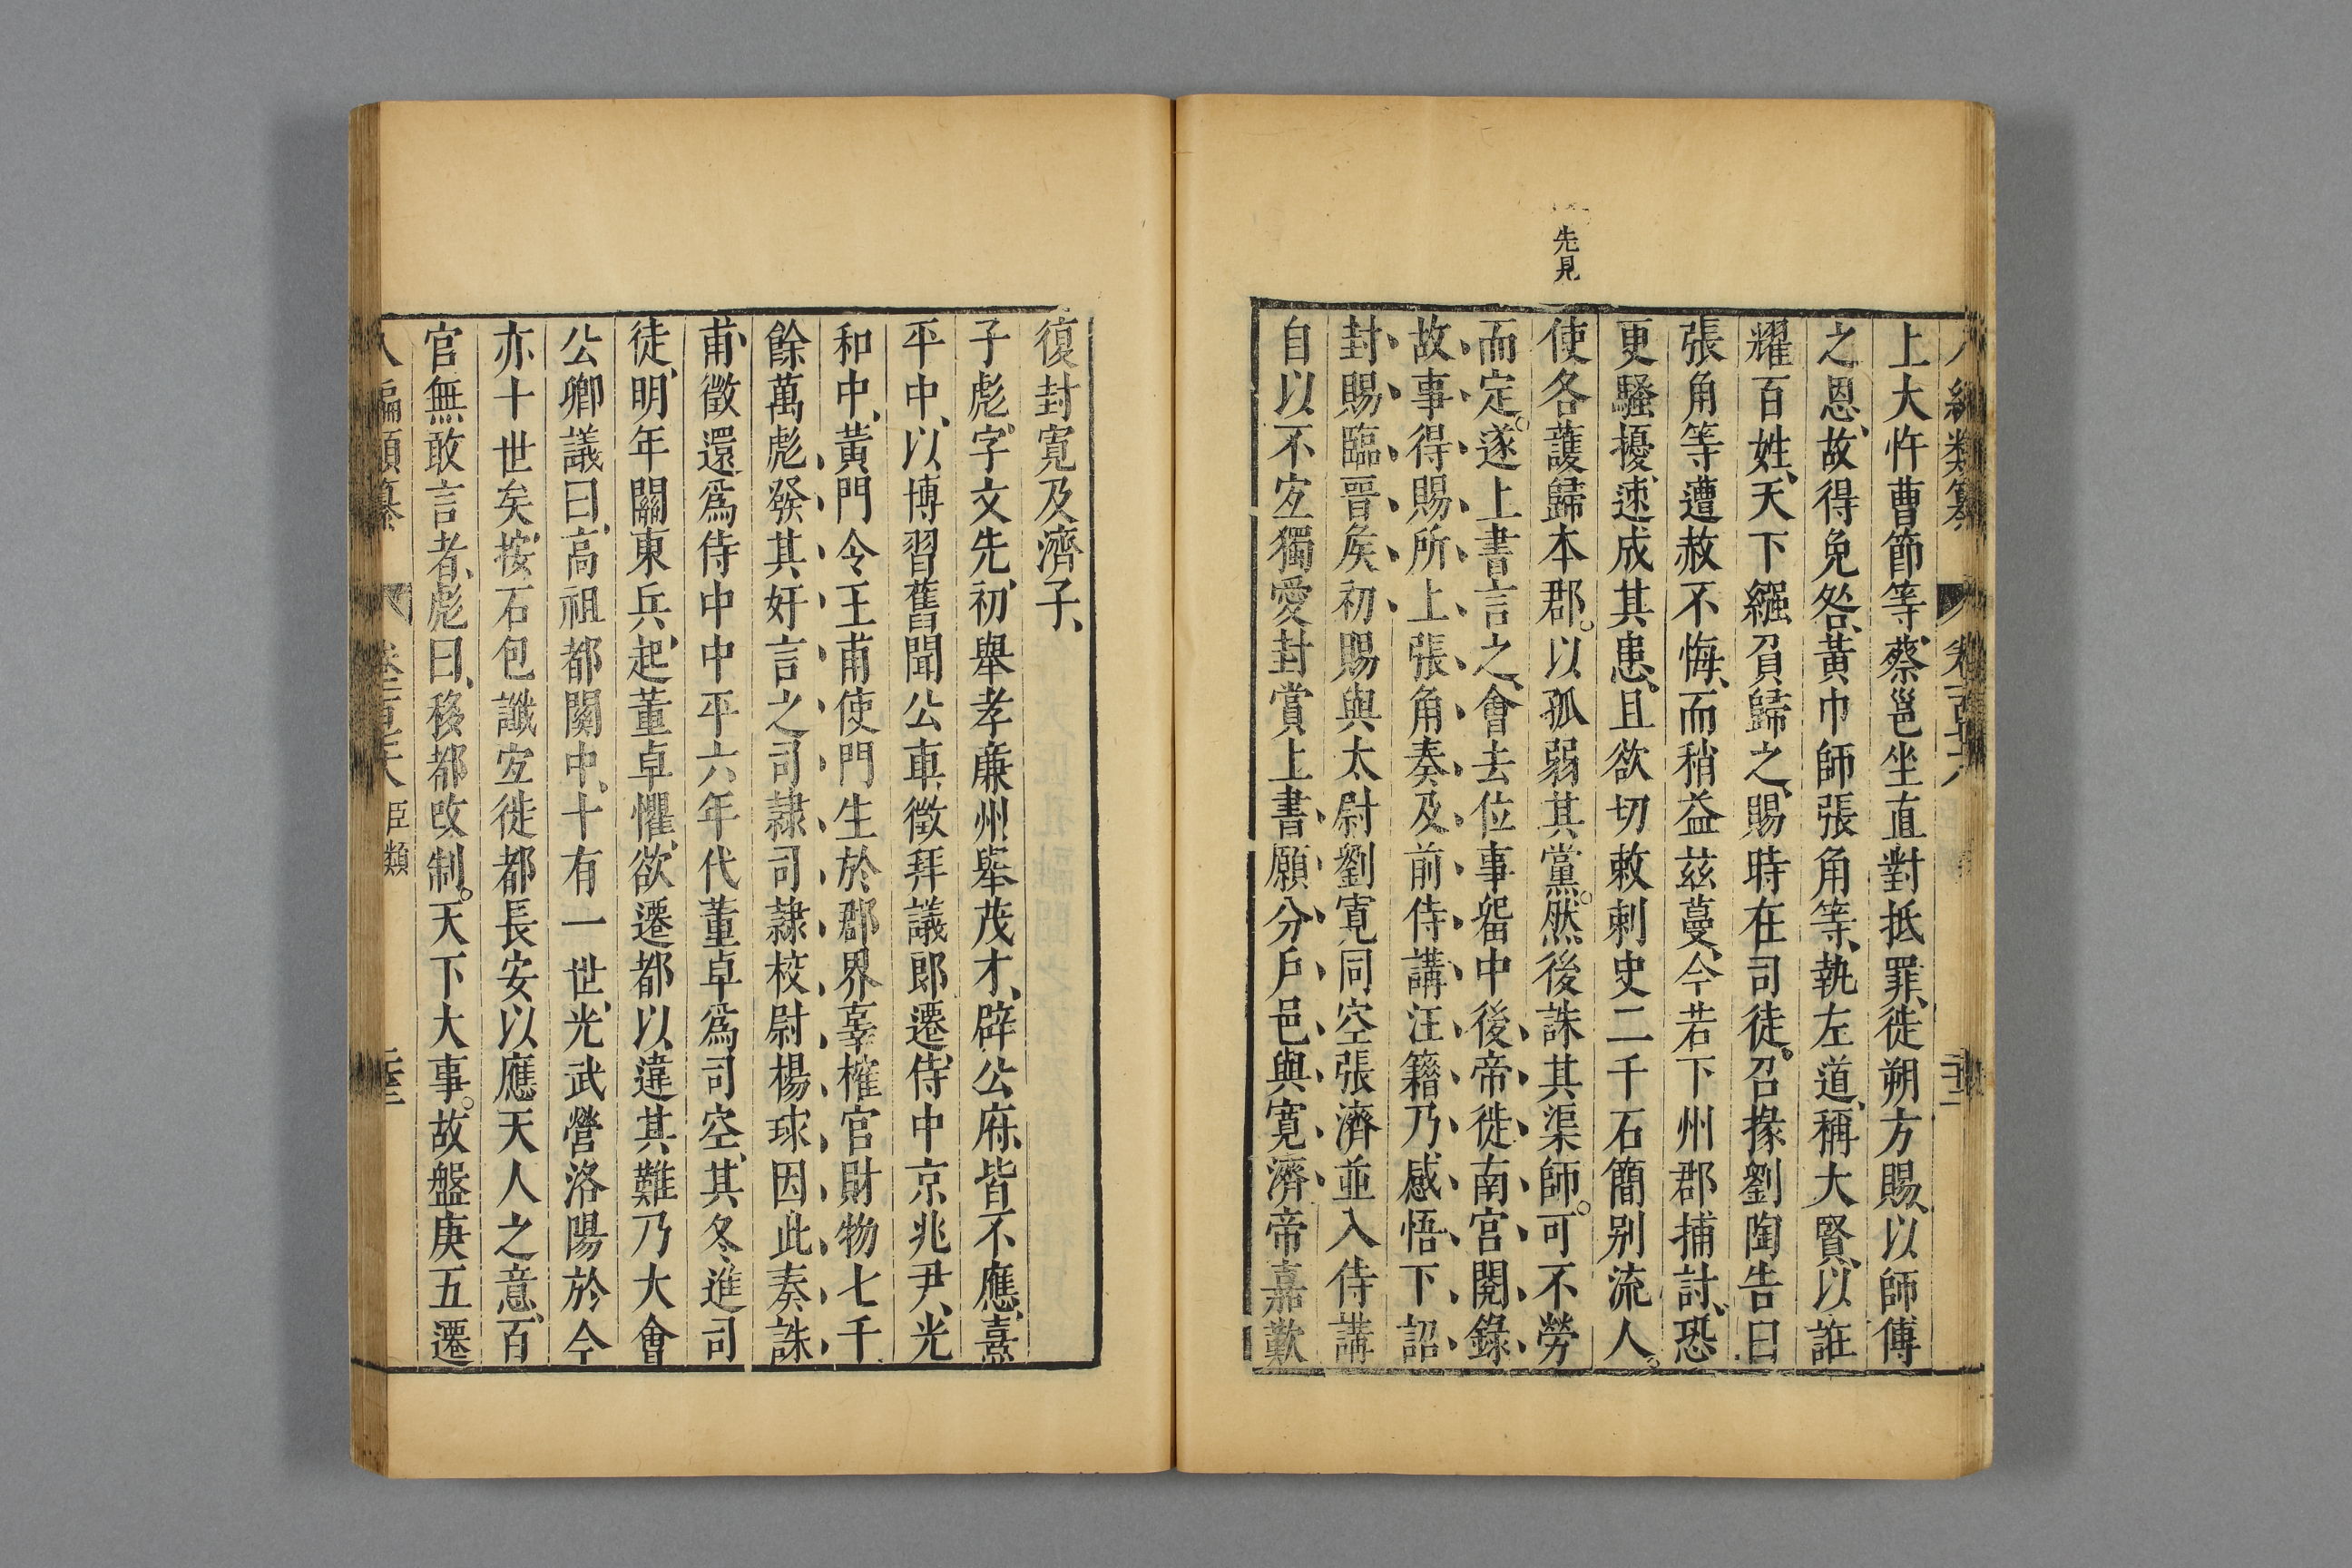 先見
上大忤曹節等蔡邕坐直對抵罪徙朔方賜以師傅
之恩故得免咎黃巾師張角等執左道稱大賢以誑
耀百姓天下繦負歸之賜時在司徒召掾劉陶告曰
張角等遭赦不悔而稍益茲蔓今若下州郡捕討恐
更騷擾速成其患且欲切敕刺史二千石簡别流人
使各護歸本郡以孤弱其黨然後誅其渠師可不勞
而定遂上書言之會去位事畱中後帝徙南宮閱錄
故事得賜所上張角奏及前侍講注籍乃感悟下詔
封賜臨晋矦初賜與太尉劉寬同空張濟並入侍講
自以不宐獨愛封賞上書願分戶邑與寬濟帝嘉歎
復封寬及濟子
子彪字文先初舉孝廉州舉茂才辟公府皆不應熹
平中以博習舊聞公車徵拜議郎遷侍中京兆尹光
和中黃門令王甫使門生於郡界辜榷官財物七千
餘萬彪發其奸言之司隷司隷校尉楊球因此奏誅
甫徵還爲侍中中平六年代董卓爲司空其冬進司
徒明年關東兵起董卓懼欲遷都以違其難乃大會
公卿議曰高祖都關中十有一世光武營洛陽於今
亦十世矣按石包讖宐徙都長安以應天人之意百
官無敢言者彪曰移都改制天下大事故盤庚五遷
臣類